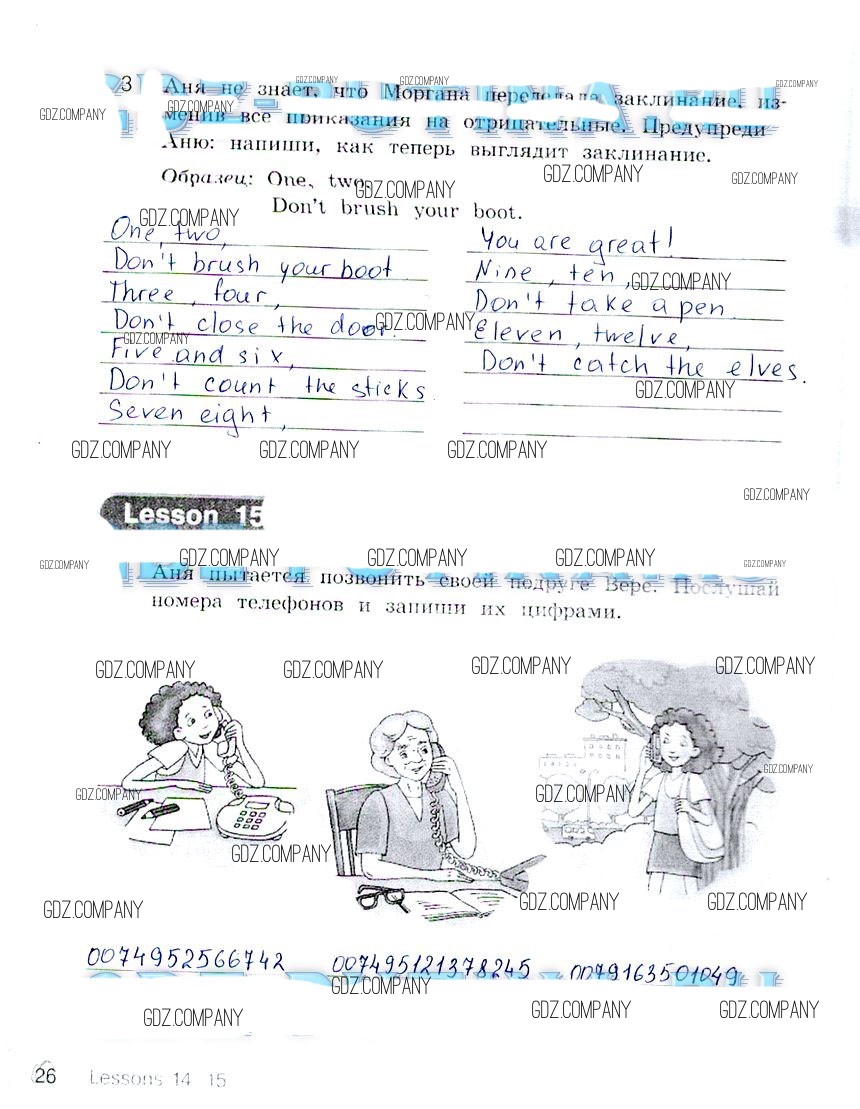 3 Аня не знает, что Моргана переделала заклинание, из-
менив все приказания на отрицательные. Предупреди
Аню: напиши, как теперь выглядит заклинание.
Образец: One, two,
Don't brush your boot.
One, two,
Don't brush your boot
Three, four,
Don't close the door.
Five and six,
Don't count the sticks
Seven eight,
You are great!
Nine, ten,
Don't take a pen
Eleven, twelve,
Don't catch the elves.
Lesson 15
Аня пытается позвонить своей подруге Вере. Послушай
номера телефонов и запиши их цифрами.
0074952566742
007495121378245
0079163501049
26 Lessons 14 15
GDZ.COMPANY